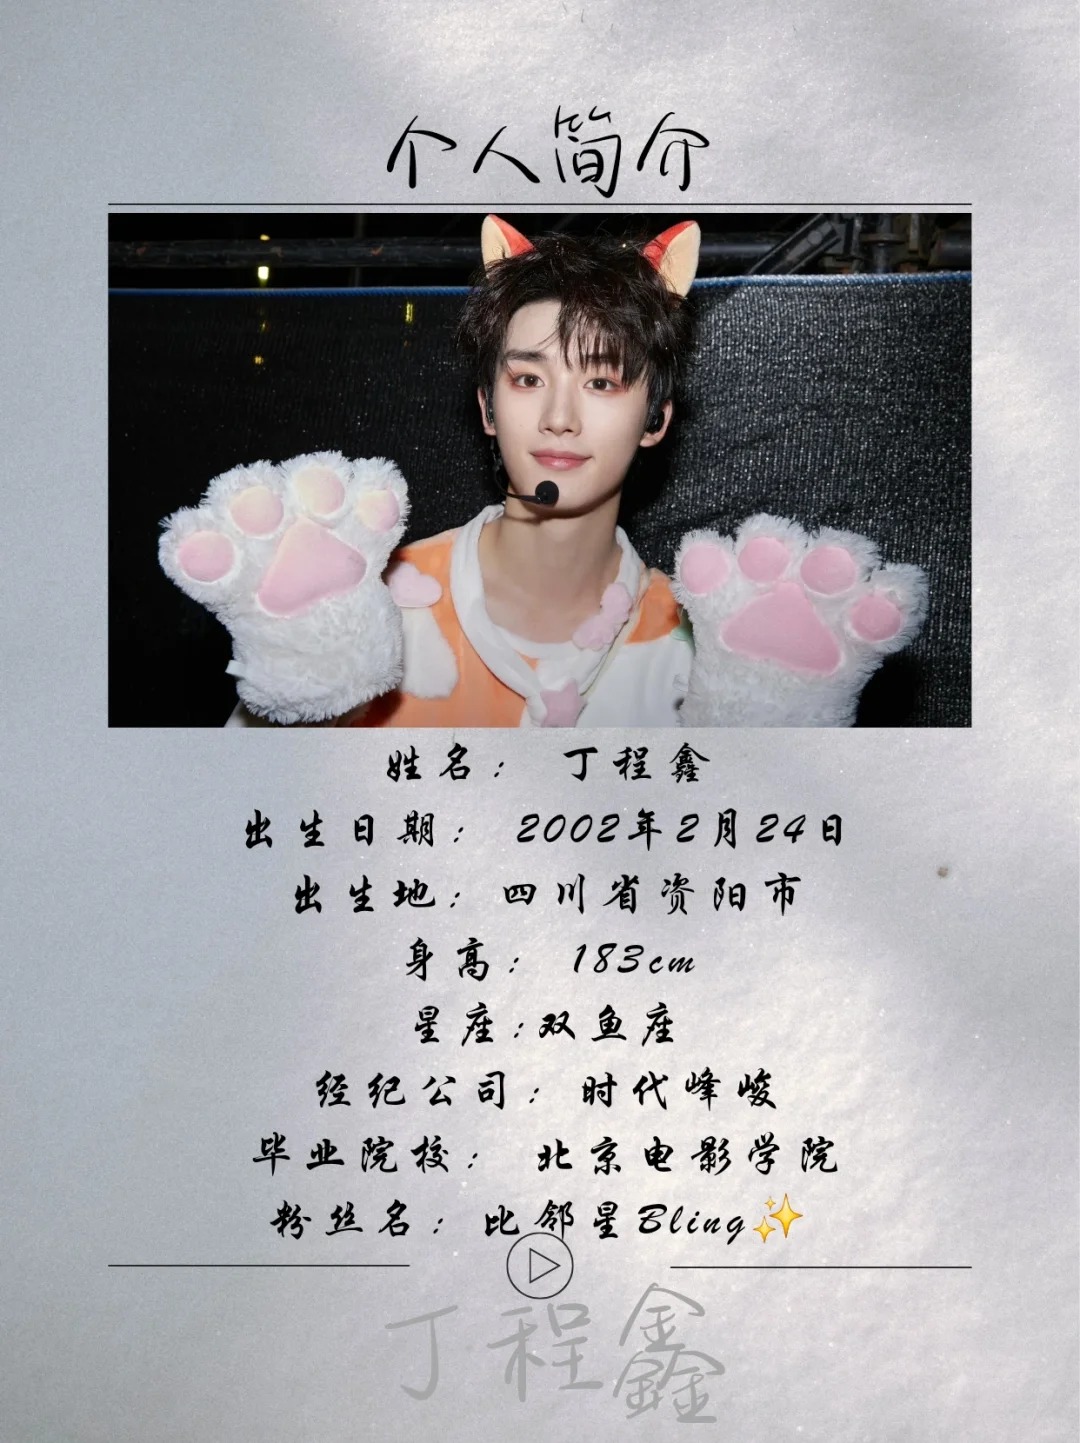 个人简介
姓名： 丁程鑫
出生日期： 2002年2月24日
出生地：四川省资阳市
身高： 183cm
星座:双鱼座
经纪公司：时代峰峻
毕业院校： 北京电影学院
粉丝名：比邻星Bling✨
丁程鑫